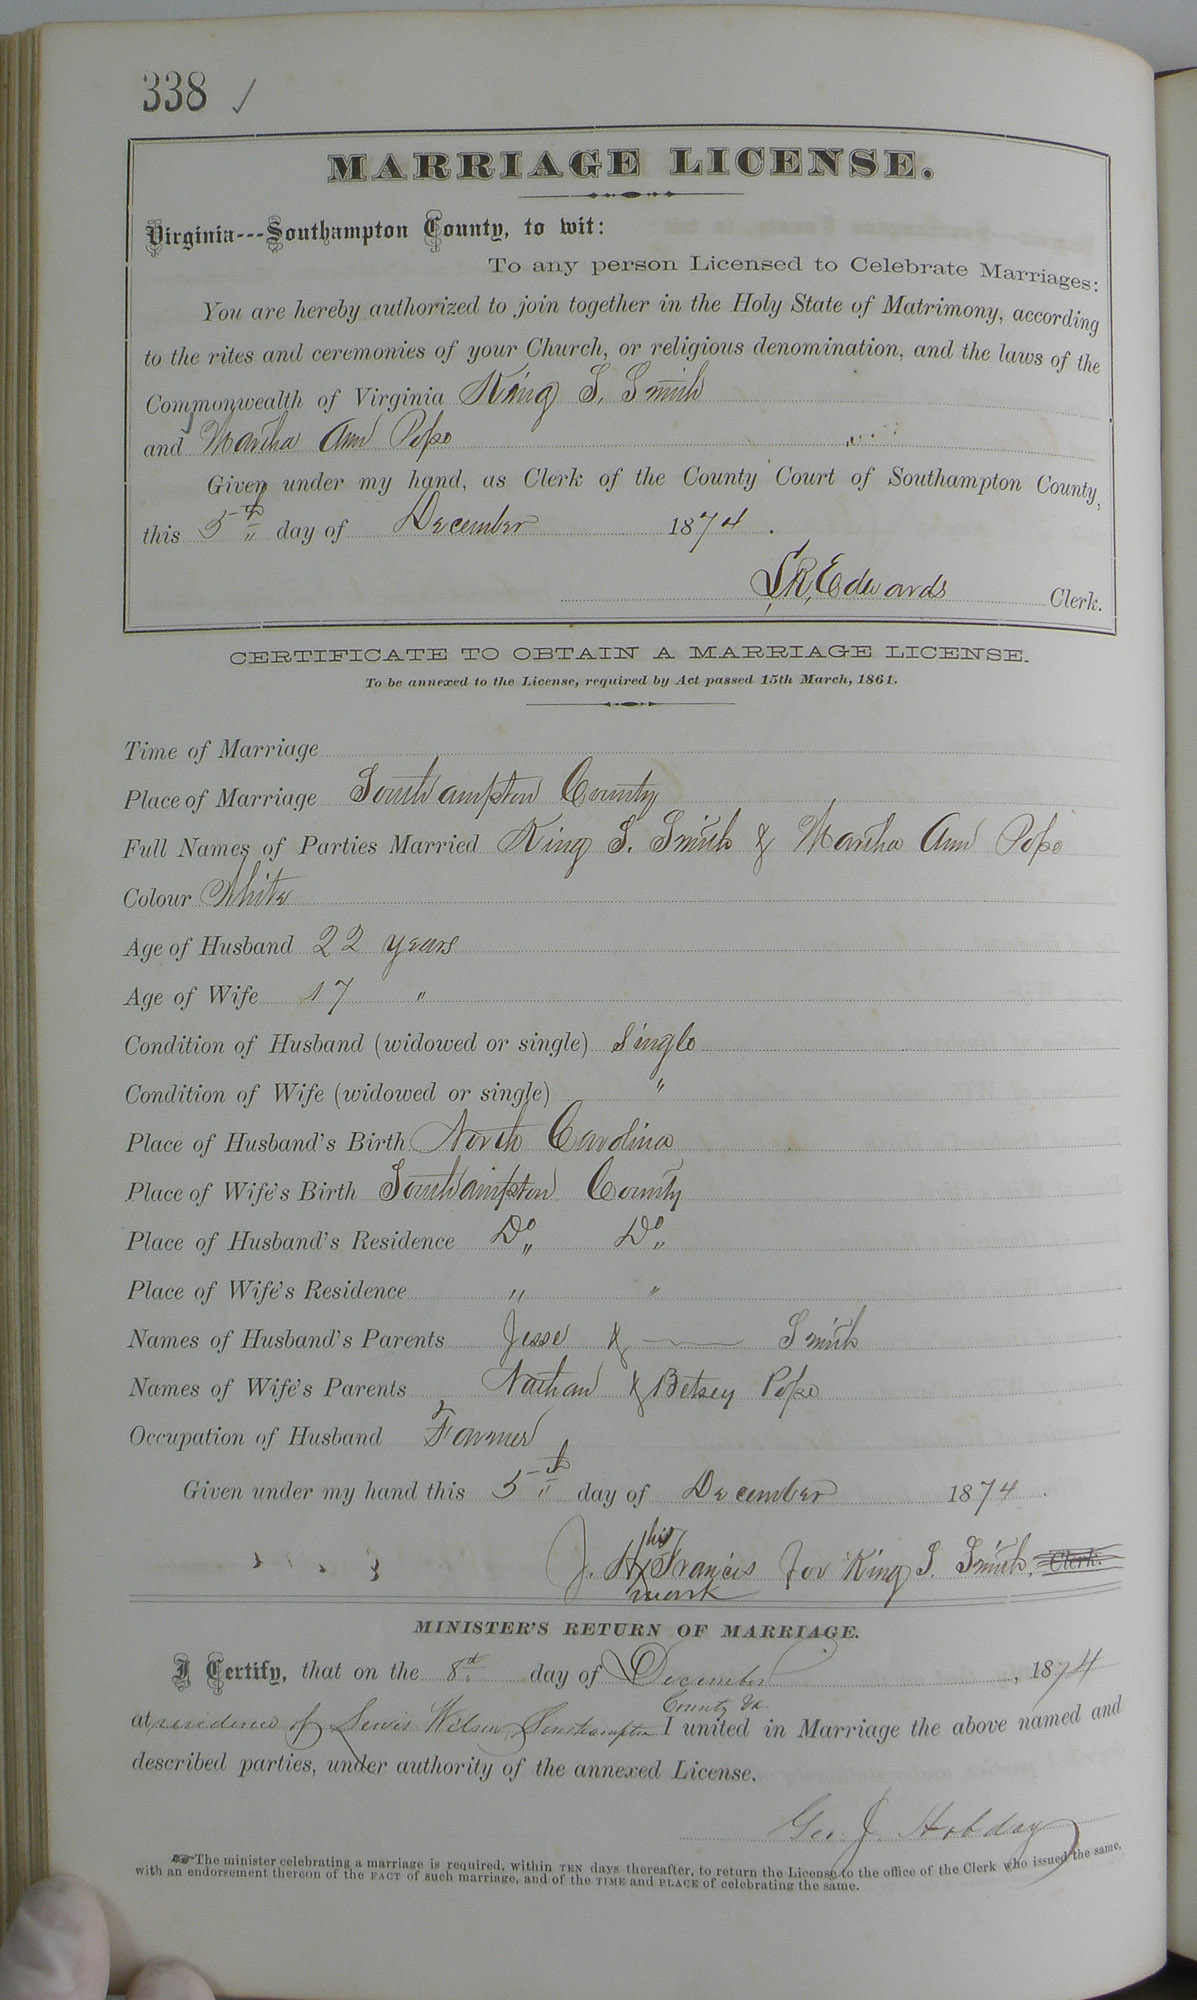 338 ✓
MARRIAGE LICENSE.
Virginia---Southampton County, to wit:
To any person Licensed to Celebrate Marriages:
You are hereby authorized to join together in the Holy State of Matrimony, according
to the rites and ceremonies of your Church, or religious denomination, and the laws of the
Commonwealth of Virginia King S. Smith
and Martha Ann Pope
Given under my hand, as Clerk of the County Court of Southampton County,
this 5th day of December 1874.
L.R. Edwards Clerk.
CERTIFICATE TO OBTAIN A MARRIAGE LICENSE.
To be annexed to the License, required by Act passed 15th March, 1861.
Time of Marriage
Place of Marriage Southampton County
Full Names of Parties Married King S. Smith & Martha Ann Pope
Colour White
Age of Husband 22 years
Age of Wife 17 "
Condition of Husband (widowed or single) Single
Condition of Wife (widowed or single) "
Place of Husband's Birth North Carolina
Place of Wife's Birth Southampton County
Place of Husband's Residence Do Do
Place of Wife's Residence " "
Names of Husband's Parents Jesse & — Smith
Names of Wife's Parents Nathan & Betsey Pope
Occupation of Husband Farmer
Given under my hand this 5th day of December 1874.
his
J. H. X Francis for King S. Smith. Clerk.
mark
MINISTER'S RETURN OF MARRIAGE.
I Certify, that on the 8th day of December, 1874
County Va.
at residence of Lewis Wilson, Southampton I united in Marriage the above named and
described parties, under authority of the annexed License.
Geo. J. Hobday
☞The minister celebrating a marriage is required, within TEN days thereafter, to return the License to the office of the Clerk who issued the same,
with an endorsement thereon of the FACT of such marriage, and of the TIME and PLACE of celebrating the same.